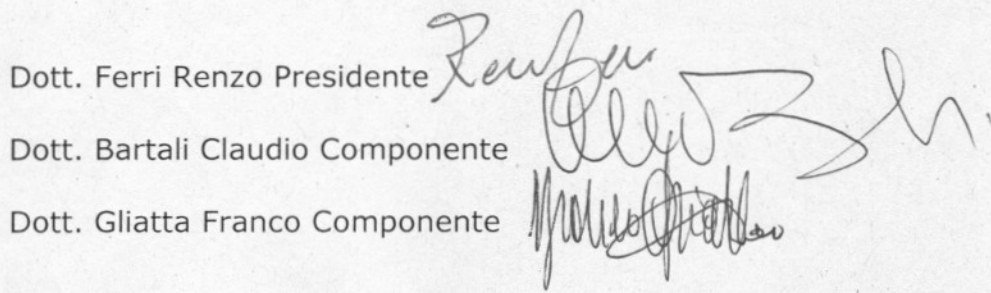 Dott. Ferri Renzo Presidente
Dott. Bartali Claudio Componente
Dott. Gliatta Franco Componente